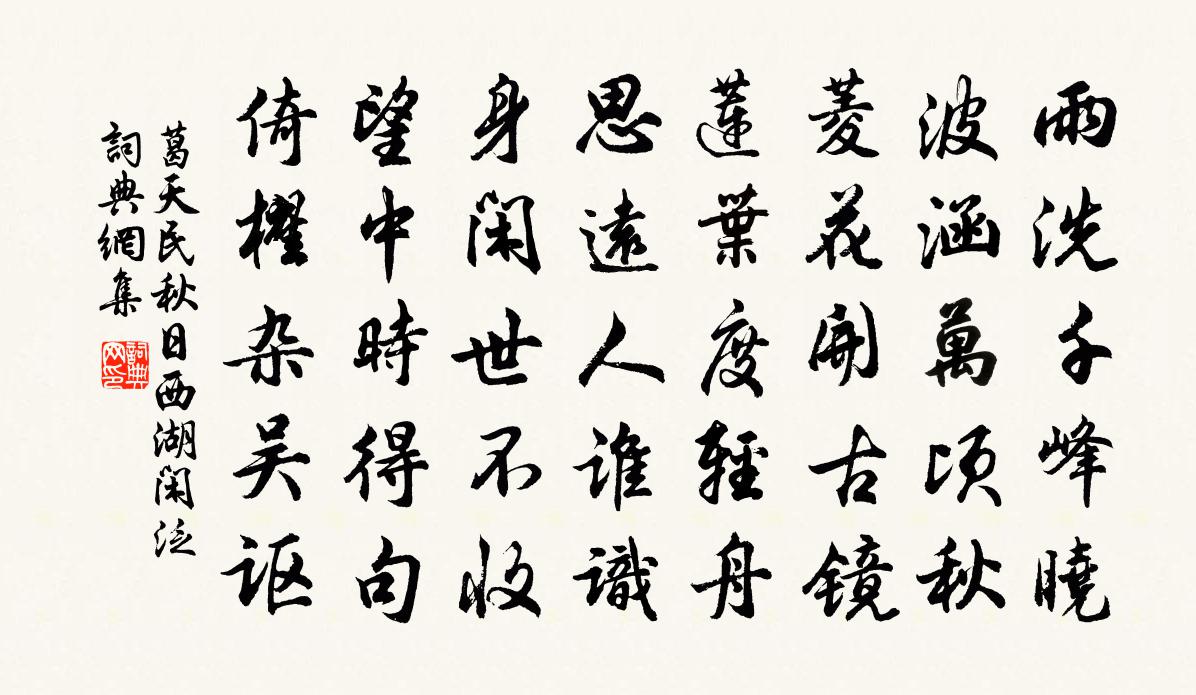 雨洗千峰曉
波涵萬頃秋
菱花開古鏡
蓮葉度輕舟
思遠人誰識
身閑世不收
望中時得句
倚櫂杂吴讴
葛天民秋日西湖闲泛
詞典網集
詞典
网印